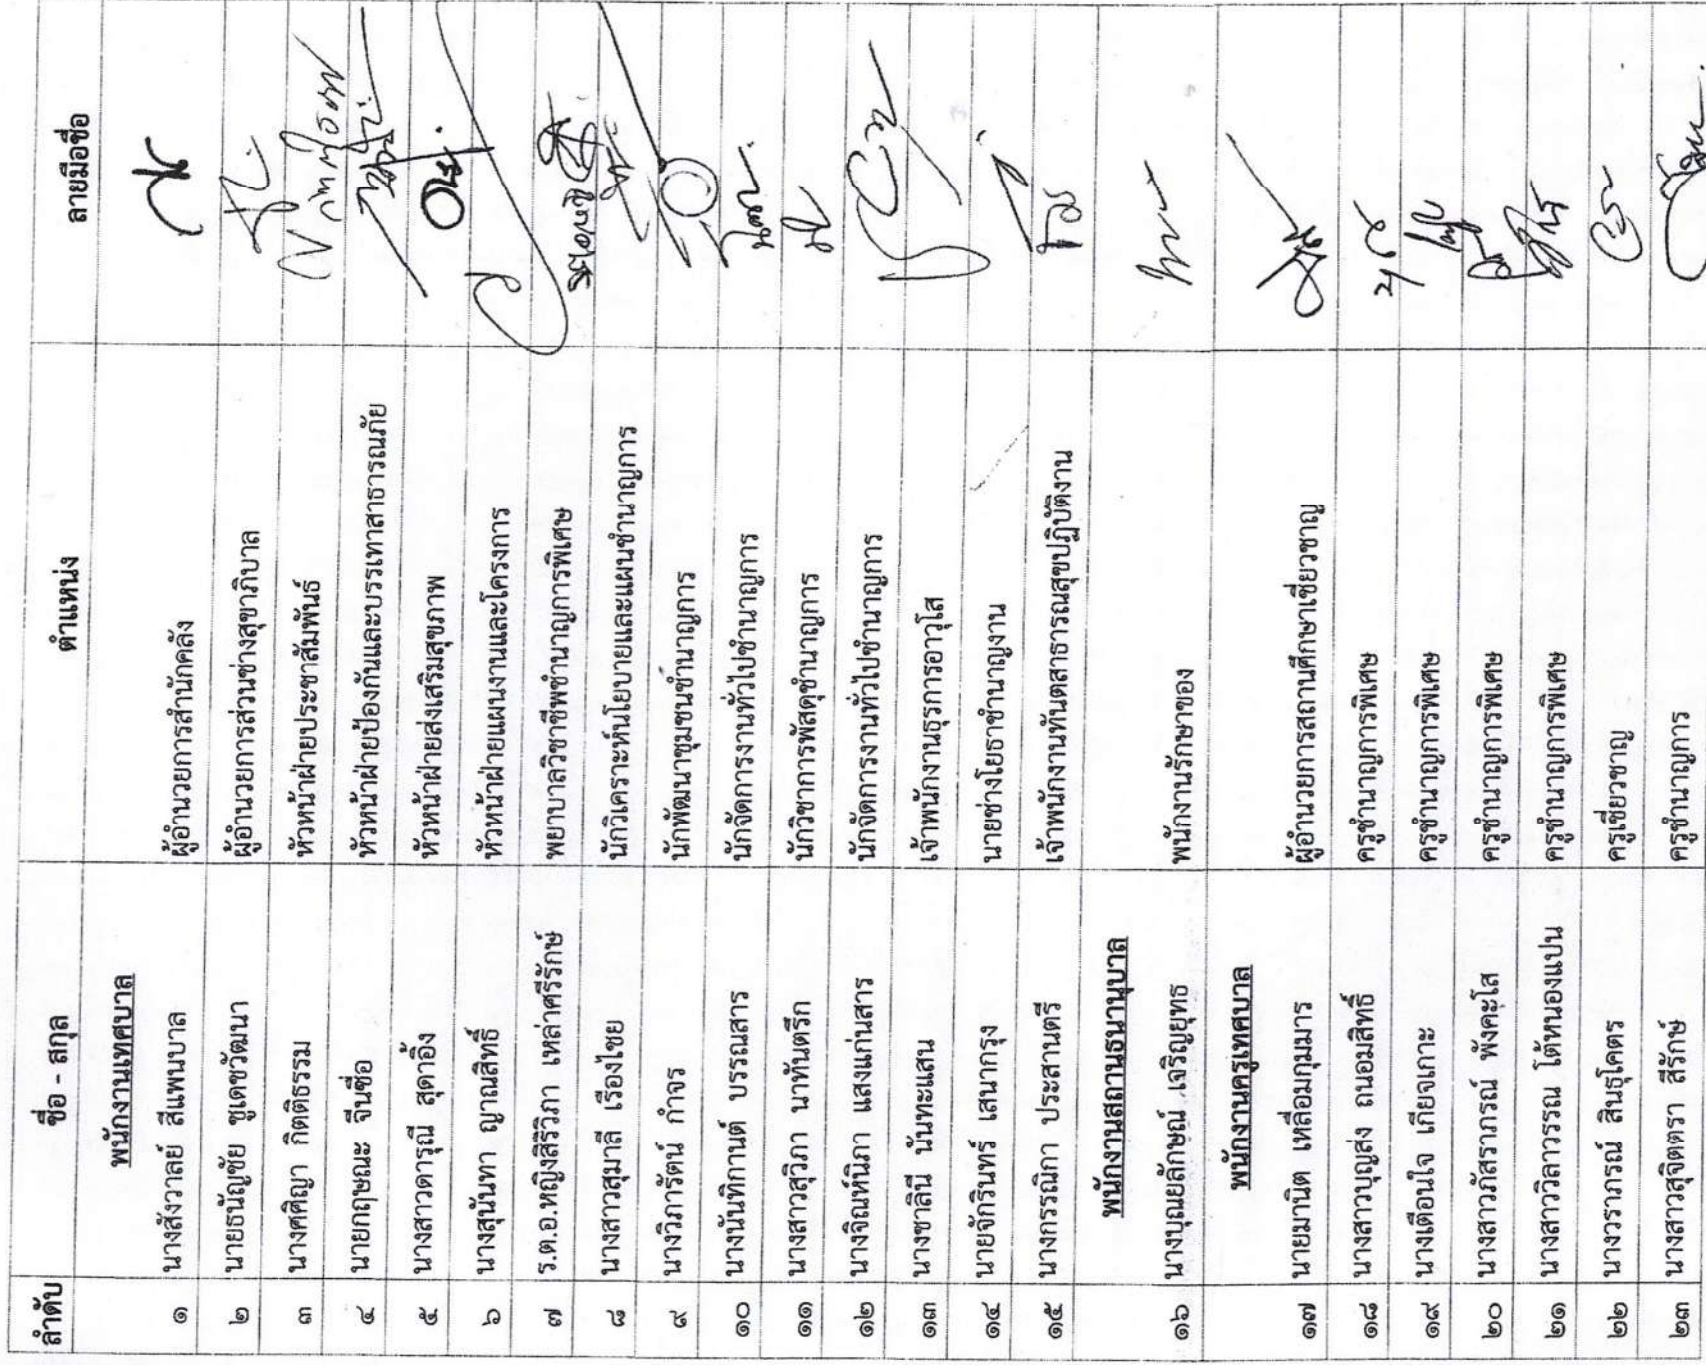 ลำดับ ชื่อ - สกุล ตำแหน่ง ลายมือชื่อ
พนักงานเทศบาล
๑ นางสังวาลย์ สีแพนบาล ผู้อำนวยการสำนักคลัง
๒ นายธนัญชัย ชูเดชวัฒนา ผู้อำนวยการส่วนช่างสุขาภิบาล
๓ นางศศิญา กิตติธรรม หัวหน้าฝ่ายประชาสัมพันธ์
๔ นายกฤษณะ จีนซื่อ หัวหน้าฝ่ายป้องกันและบรรเทาสาธารณภัย
๕ นางสาวดารุณี สุดาอิ้ง หัวหน้าฝ่ายส่งเสริมสุขภาพ
๖ นางสุนันทา ญาณสิทธิ์ หัวหน้าฝ่ายแผนงานและโครงการ
๗ ร.ต.อ.หญิงสิริวิภา เหล่าศรีรักษ์ พยาบาลวิชาชีพชำนาญการพิเศษ
๘ นางสาวสุมาลี เรืองไชย นักวิเคราะห์นโยบายและแผนชำนาญการ
๙ นางวิภารัตน์ กำจร นักพัฒนาชุมชนชำนาญการ
๑๐ นางนันทิกานต์ บรรณสาร นักจัดการงานทั่วไปชำนาญการ
๑๑ นางสาวสุวิภา นาทันตรึก นักวิชาการพัสดุชำนาญการ
๑๒ นางจิณห์นิภา แสงแก่นสาร นักจัดการงานทั่วไปชำนาญการ
๑๓ นางชาลินี นันทะแสน เจ้าพนักงานธุรการอาวุโส
๑๔ นายจักรินทร์ เสนากรุง นายช่างโยธาชำนาญงาน
๑๕ นางกรรณิกา ประสานตรี เจ้าพนักงานทันตสาธารณสุขปฏิบัติงาน
พนักงานสถานธนานุบาล
๑๖ นางบุณยลักษณ์ เจริญยุทธ พนักงานรักษาของ
พนักงานครูเทศบาล
๑๗ นายมานิต เหลื่อมกุมมาร ผู้อำนวยการสถานศึกษาเชี่ยวชาญ
๑๘ นางสาวบุญส่ง ถนอมสิทธิ์ ครูชำนาญการพิเศษ
๑๙ นางเตือนใจ เกียงเกาะ ครูชำนาญการพิเศษ
๒๐ นางสาวภัสราภรณ์ พังคะโส ครูชำนาญการพิเศษ
๒๑ นางสาววิลาวรรณ โต้หนองแปน ครูชำนาญการพิเศษ
๒๒ นางวราภรณ์ สินธุโคตร ครูเชี่ยวชาญ
๒๓ นางสาวสุจิตตรา สีรักษ์ ครูชำนาญการ